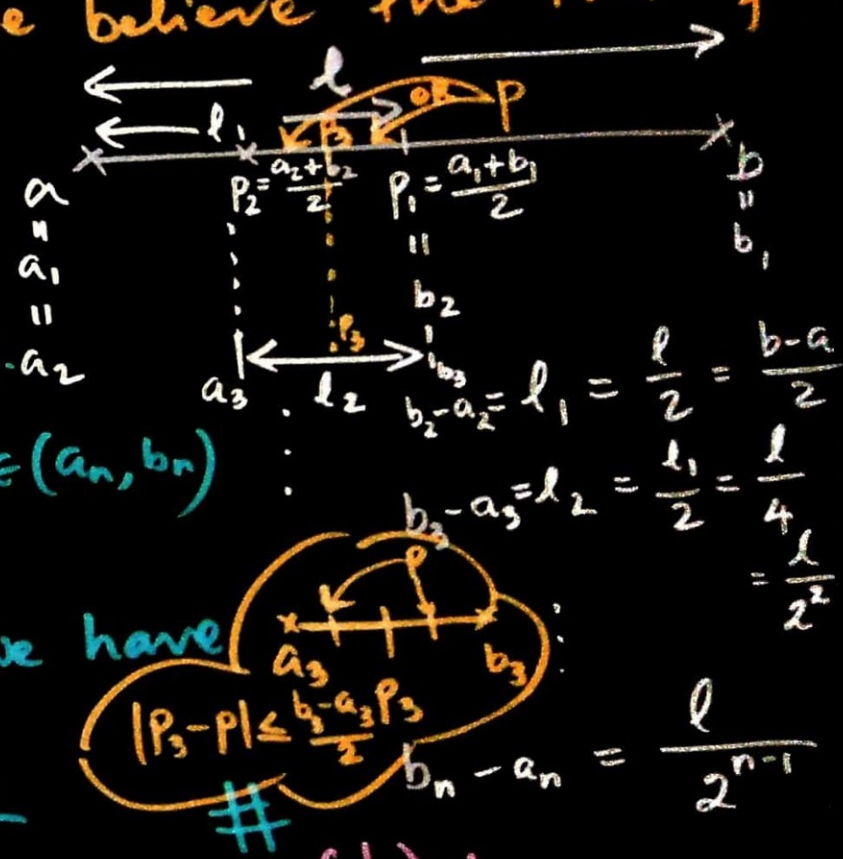 e believe the
l
p
l₁
p₂ = (a₂+b₂)/2 p₁ = (a₁+b₁)/2
a b
= =
a₁ = b₁
= b₂
a₂
p₃
a₃ l₂ b₃
b₂-a₂ = l₁ = l/2 = (b-a)/2
∈(aₙ, bₙ)
b₃-a₃ = l₂ = l₁/2 = l/4
= l/2²
p
have
a₃ b₃
|p₃-p| ≤ (b₃-a₃)/2 p₃
bₙ - aₙ = l/2ⁿ⁻¹
#